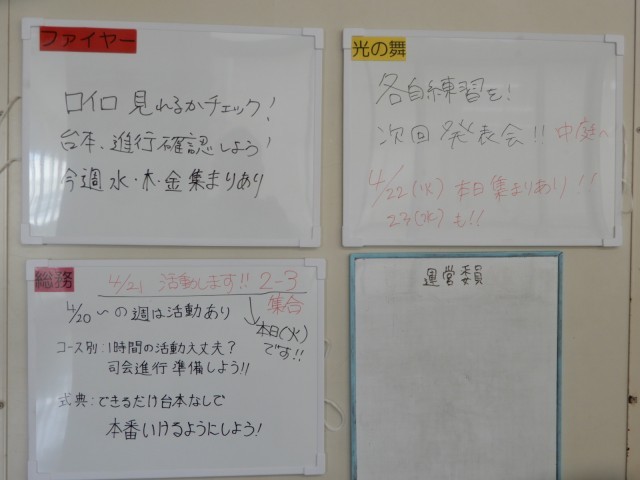 ファイヤー
ロイロ 見れるかチェック!
台本、進行確認しよう!
今週 水・木・金 集まりあり
光の舞
各自練習を!
次回 発表会!! 中庭へ
4/22(火) 本日集まりあり!!
23(水)も!!
総務
4/21 活動します!! 2-3
集合
4/20〜の週は活動あり
本日(火)
です!!
コース別:1時間の活動大丈夫?
司会進行準備しよう!!
式典:できるだけ台本なしで
本番いけるようにしよう!
運営委員